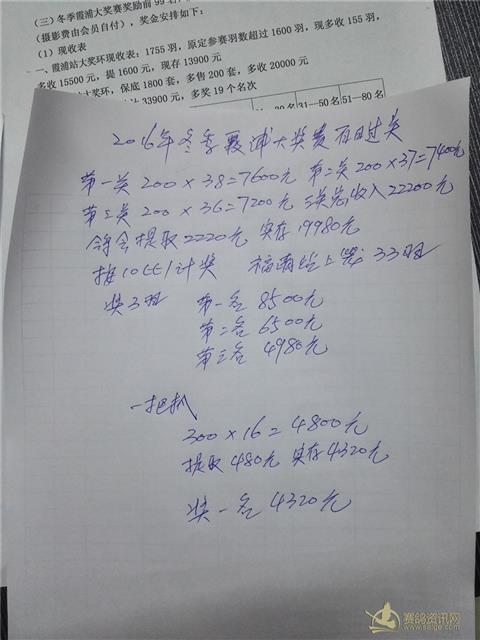 (三)冬季霞浦大奖赛奖励前99名
(摄影费由会员自付),奖金安排如下:
(1)现收表
一、霞浦站大奖环现收表:1755羽,原定参赛羽数超过1600羽,现多收155羽,
多收15500元,提1600元,现存13900元
大奖环,保底1800套,多售200套,多收20000元
33900元,多奖19个名次
31—50名 51—80名
2016年冬季霞浦大奖赛百日过关
第一关200×38=7600元 第二关200×37=7400元
第三关200×36=7200元 3关总收入22200元
鸽会提取2220元 实存19980元
按10比1计奖 福霸站上笼33羽
奖3羽 第一名 8500元
第二名 6500元
第三名 4980元
一把抓
300×16=4800元
提取480元 实存4320元
奖一名4320元
赛鸽资讯网
www.saige.com